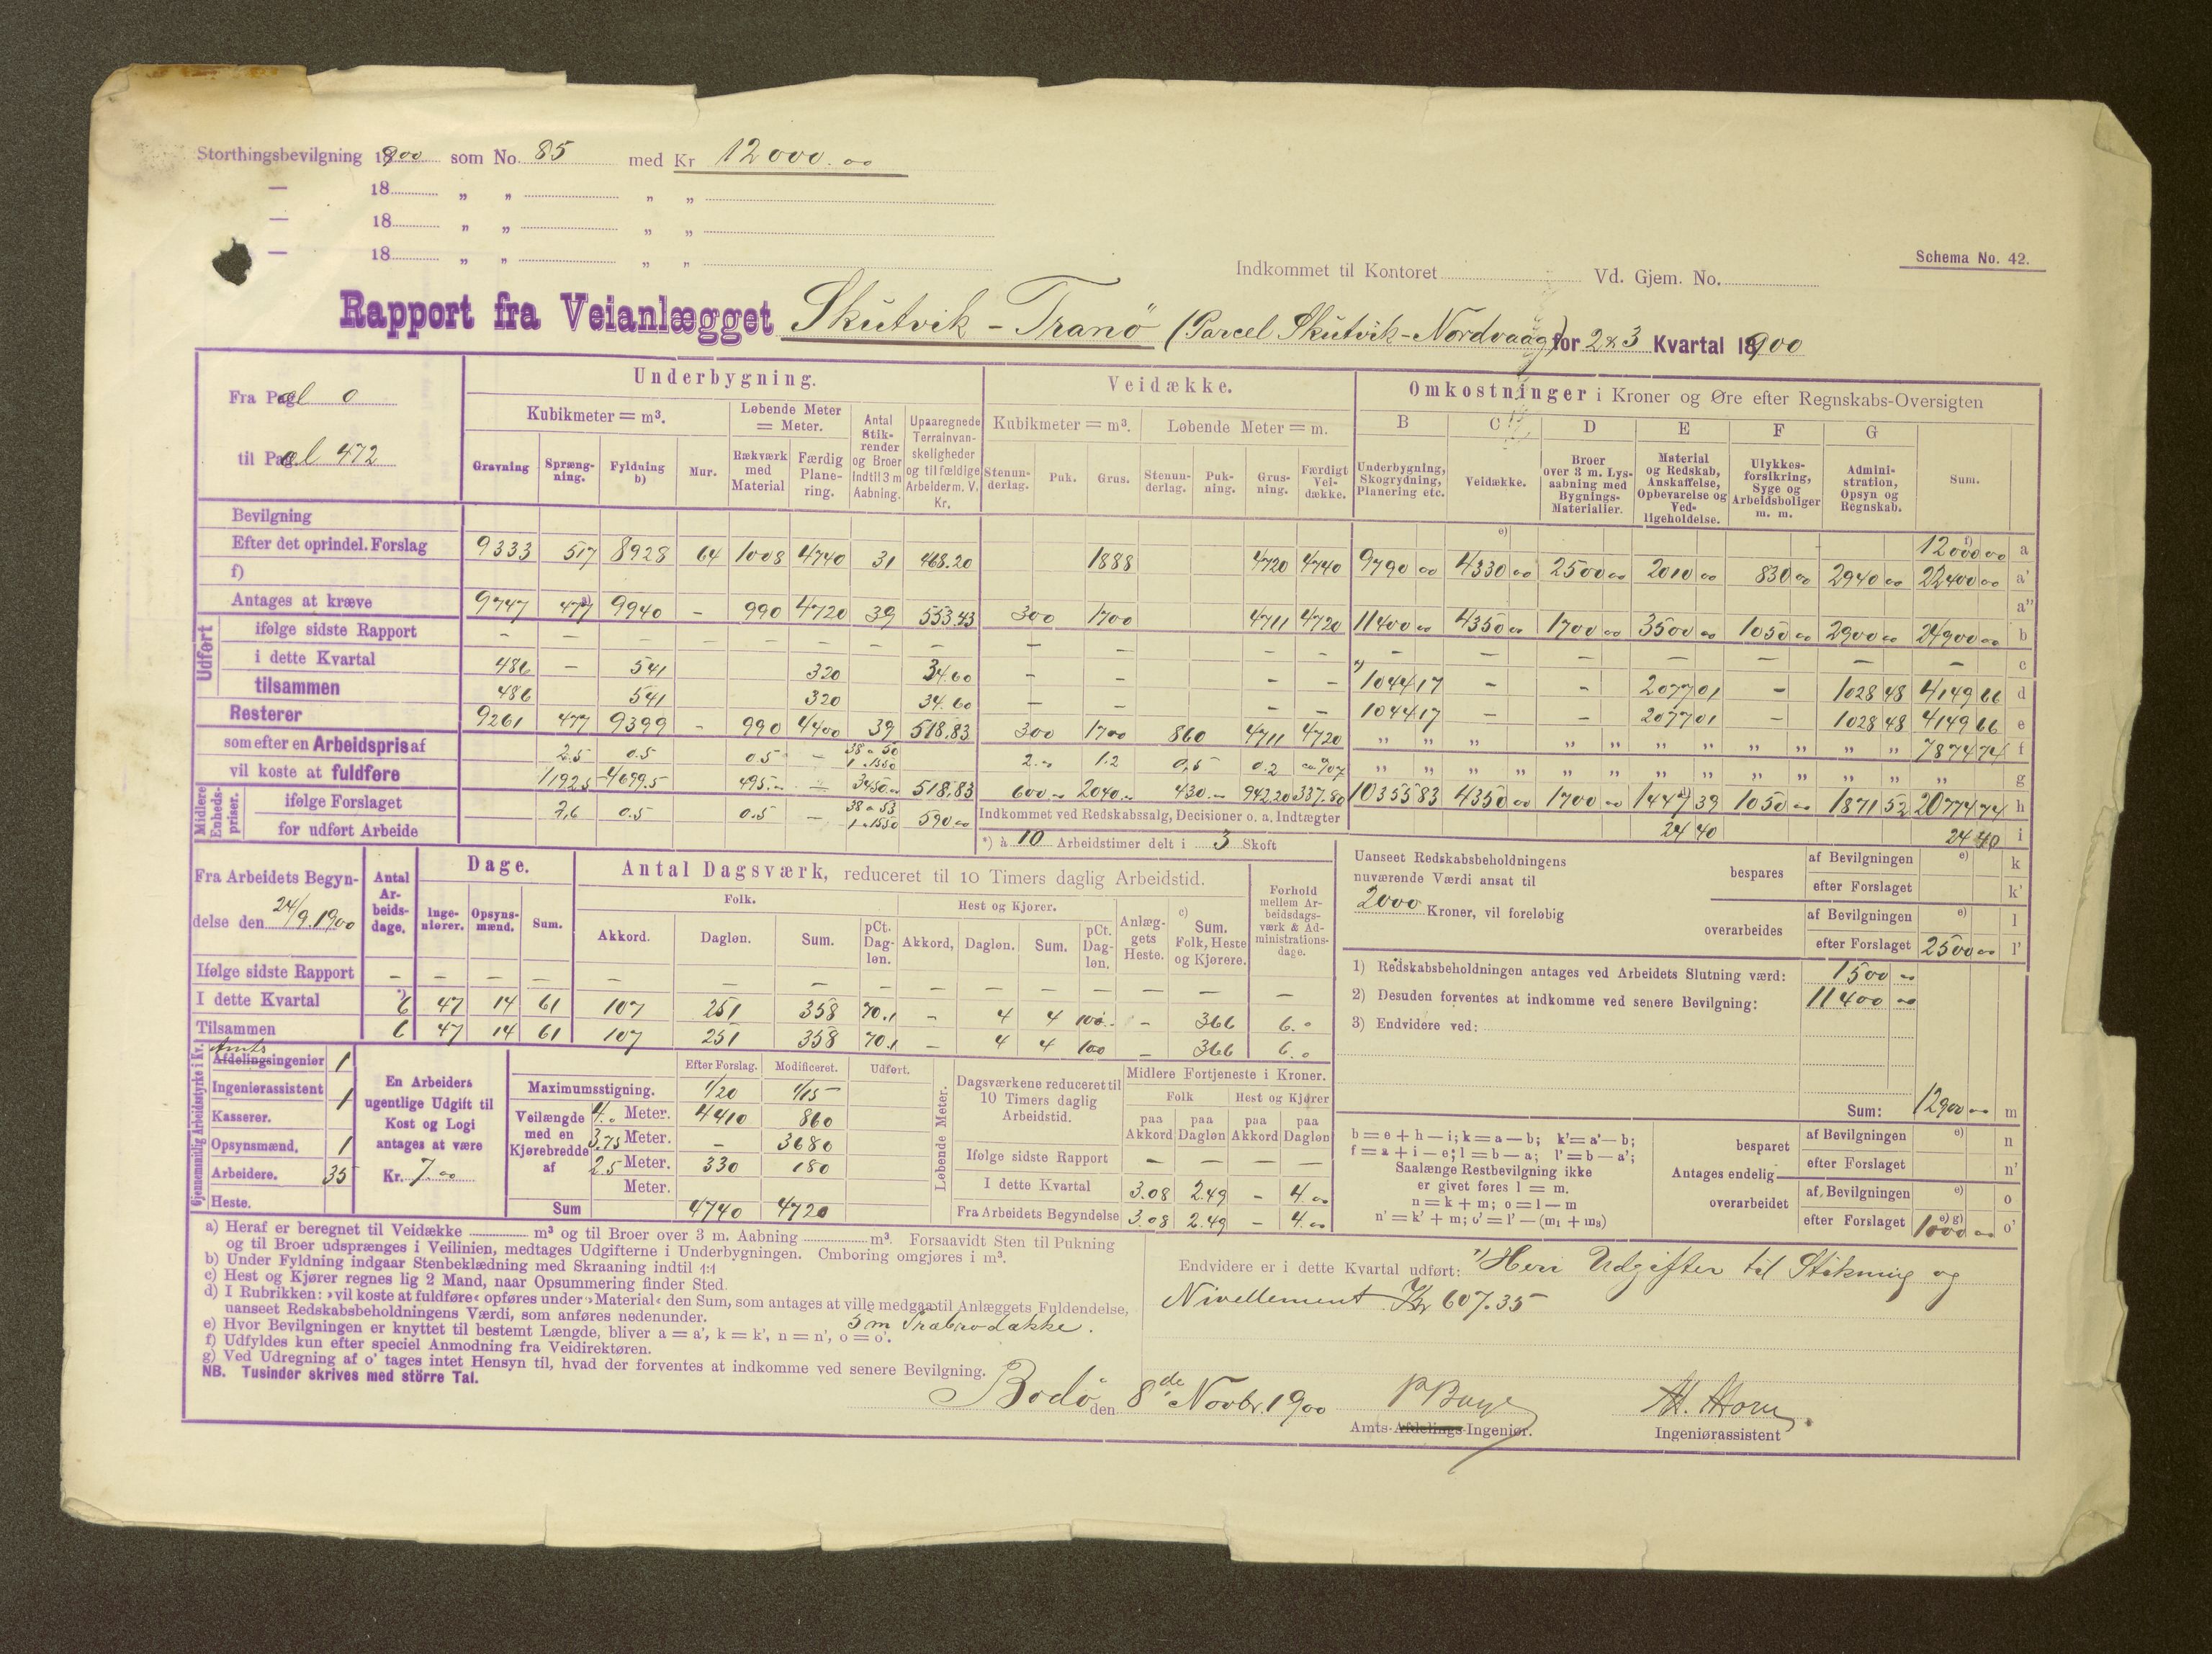 Storthingsbevilgning 1900 som No. 85 med Kr 12000.00
— 18 „ „ „ „
— 18 „ „ „ „
— 18 „ „ „ „
Indkommet til Kontoret Vd. Gjem. No.
Schema No. 42.
Rapport fra Veianlægget Skutvik - Tranö (Parcel Skutvik-Nordvaag) for 2 & 3 Kvartal 1900
Fra Pæl 0
til Pæl 472
Underbygning. Veidække. Omkostninger i Kroner og Øre efter Regnskabs-Oversigten
Kubikmeter = m³. Løbende Meter = Meter. Antal Stikrender og Broer indtil 3 m Aabning. Upaaregnede Terrainvanskeligheder og tilfældige Arbeider m. V. Kr. Kubikmeter = m³. Løbende Meter = m. B C D E F G
Gravning Sprængning. Fyldning b) Mur. Rækværk med Material Færdig Planering. Stenunderlag. Puk. Grus. Stenunderlag. Pukning. Grusning. Færdigt Veidække. Underbygning, Skogrydning, Planering etc. Veidække. Broer over 3 m. Lysaabning med Bygnings-Materialier. Material og Redskab, Anskaffelse, Opbevarelse og Vedligeholdelse. Ulykkesforsikring, Syge og Arbeidsboliger m. m. Administration, Opsyn og Regnskab. Sum.
Bevilgning e) f) 12000 00 a
Efter det oprindel. Forslag 9333 517 8928 64 1008 4740 31 468.20 1888 4720 4740 9790 00 4330 00 2500 00 2010 00 830 00 2940 00 22400 00 a'
f) a"
Antages at kræve 9747 477 a) 9940 - 990 4720 39 553.43 300 1700 4711 4720 11400 00 4350 00 1700 00 3500 00 1050 00 2900 00 24900 00 b
Udført
ifølge sidste Rapport - - - - - - - - - - - - - - - - - - - c
i dette Kvartal 486 - 541 320 34.60 - - - - 1044 17 - - 2077 01 - 1028 48 4149 66 d
tilsammen 486 541 320 34.60 - - - - 1044 17 - - 2077 01 - 1028 48 4149 66 e
Resterer 9261 477 9399 - 990 4400 39 518.83 300 1700 860 4711 4720 „ „ „ „ „ „ „ „ „ „ „ 7874 74 f
som efter en Arbeidspris af 2.5 0.5 0.5 - 38 a 50 1 a 1550 2.00 1.2 0,5 0.2 ca. 0.07 „ „ „ „ „ „ „ „ „ „ „ „ „ g
vil koste at fuldføre 1192.5 4699.5 495.00 - 3450.00 518.83 600.00 2040.00 430.00 942.20 337.80 10355 83 4350 00 1700 00 1447 39 1050 00 1871 52 20774 74 h
Midlere Enhedspriser.
ifølge Forslaget 2,6 0.5 0.5 - 38 a 53 1 a 1550 590.00 Indkommet ved Redskabssalg, Decisioner o. a. Indtægter 24 40 24 40 i
for udført Arbeide *) à 10 Arbeidstimer delt i 3 Skoft
Fra Arbeidets Begyndelse den 24/9.1900
Antal Arbeidsdage. Dage. Antal Dagsværk, reduceret til 10 Timers daglig Arbeidstid. Forhold mellem Arbeidsdagsværk & Administrationsdage.
Folk. Hest og Kjører. Anlæggets Heste. c) Sum. Folk, Heste og Kjørere.
Ingeniører. Opsynsmænd. Sum. Akkord. Dagløn. Sum. pCt. Dagløn. Akkord, Dagløn. Sum. pCt. Dagløn.
Ifølge sidste Rapport - - - - - - - - - - - - - - -
I dette Kvartal *) 6 47 14 61 107 251 358 70.1 - 4 4 100 - 366 6.0
Tilsammen 6 47 14 61 107 251 358 70.1 - 4 4 100 - 366 6.0
Uanseet Redskabsbeholdningens nuværende Værdi ansat til 2000 Kroner, vil foreløbig
bespares af Bevilgningen e) k
efter Forslaget k'
overarbeides af Bevilgningen e) l
efter Forslaget 2500 00 l'
1) Redskabsbeholdningen antages ved Arbeidets Slutning værd: 1500 00
2) Desuden forventes at indkomme ved senere Bevilgning: 11400 00
3) Endvidere ved:
Sum: 12900 00 m
Gjennemsnitlig Arbeidsstyrke i Kv.
Amts
Afdelingsingeniør 1
Ingeniørassistent 1
Kasserer.
Opsynsmænd, 1
Arbeidere. 35
Heste.
En Arbeiders ugentlige Udgift til Kost og Logi antages at være
Kr. 7.00
Efter Forslag. Modificeret. Udført.
Maximumsstigning. 1/20 1/15
Veilængde med en Kjørebredde af
4.0 Meter. 4410 860
3.75 Meter. - 3680
2.5 Meter. 330 180
Meter.
Sum 4740 4720
Løbende Meter.
Dagsværkene reduceret til 10 Timers daglig Arbeidstid. Midlere Fortjeneste i Kroner.
Folk Hest og Kjører
paa Akkord paa Dagløn paa Akkord paa Dagløn
Ifølge sidste Rapport - - - -
I dette Kvartal 3.08 2.49 - 4.00
Fra Arbeidets Begyndelse 3.08 2.49 - 4.00
b = e + h — i; k = a — b; k' = a' — b;
f = a + i — e; l = b — a; l' = b — a';
Saalænge Restbevilgning ikke
er givet føres l = m.
n = k + m; o = l — m
n' = k' + m; o' = l' — (m₁ + m₃)
Antages endelig
besparet af Bevilgningen e) n
efter Forslaget n'
overarbeidet af Bevilgningen e) o
efter Forslaget e) g) 1000 00 o'
a) Heraf er beregnet til Veidække m³ og til Broer over 3 m. Aabning m³. Forsaavidt Sten til Pukning
og til Broer udsprænges i Veilinien, medtages Udgifterne i Underbygningen. Omboring omgjøres i m³.
b) Under Fyldning indgaar Stenbeklædning med Skraaning indtil 1:1
c) Hest og Kjører regnes lig 2 Mand, naar Opsummering finder Sted.
d) I Rubrikken: »vil koste at fuldføre« opføres under »Material« den Sum, som antages at ville medgaa til Anlæggets Fuldendelse,
uanseet Redskabsbeholdningens Værdi, som anføres nedenunder.
e) Hvor Bevilgningen er knyttet til bestemt Længde, bliver a = a', k = k', n = n', o = o'.
5 m Træbrodække.
f) Udfyldes kun efter speciel Anmodning fra Veidirektøren.
g) Ved Udregning af o' tages intet Hensyn til, hvad der forventes at indkomme ved senere Bevilgning.
NB. Tusinder skrives med större Tal.
Endvidere er i dette Kvartal udført: *) Heri Udgifter til Stikning og
Nivellement Kr 607.35
Bodö den 8de Novbr. 1900
Amts-Afdelings-Ingeniør.
Ingeniørassistent